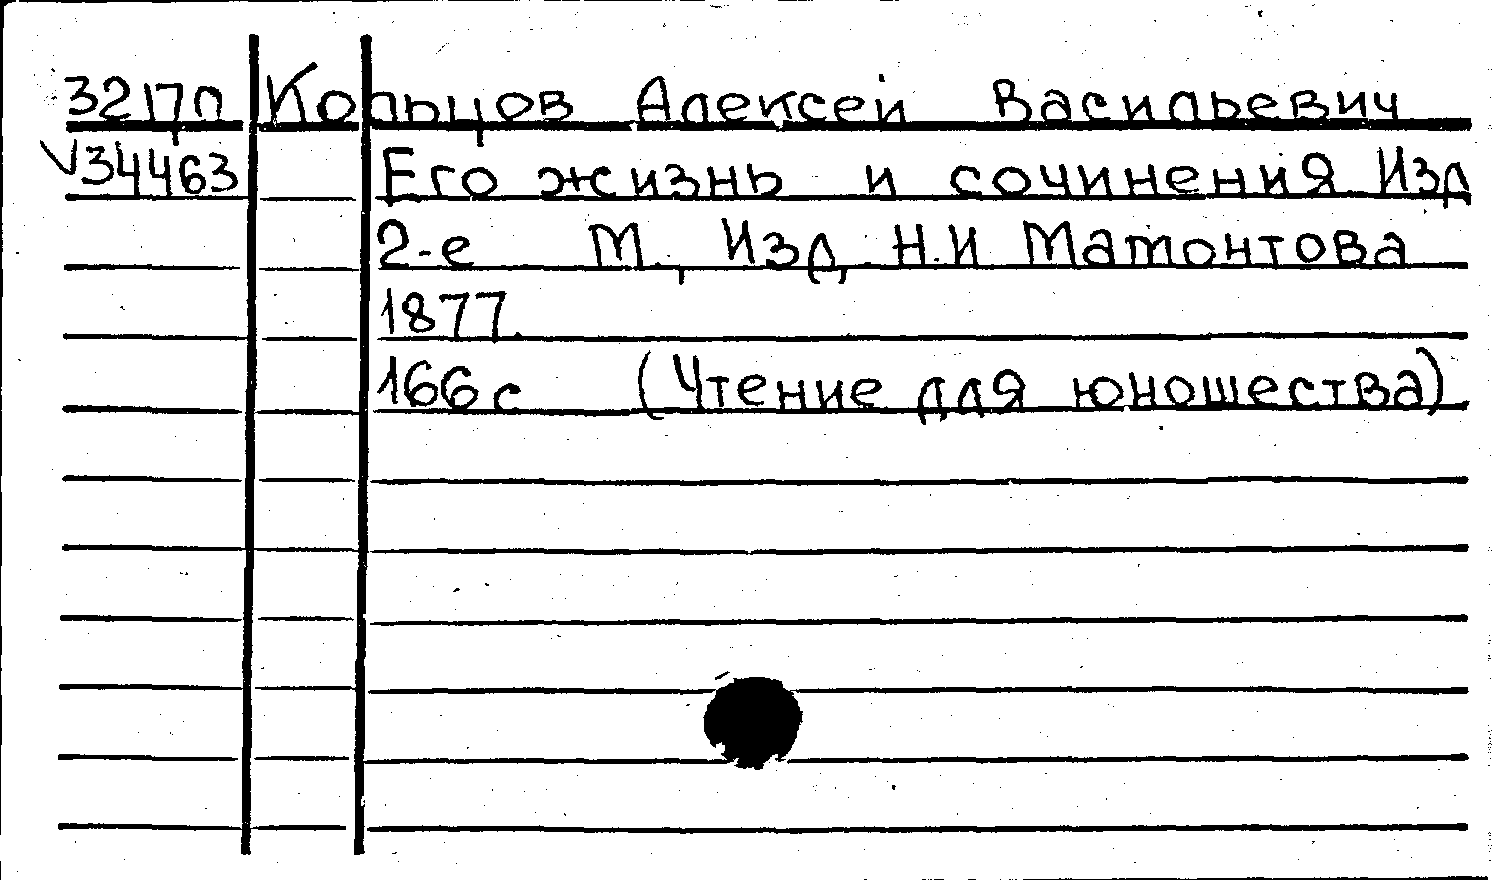 3217п Кольцов Алексей Васильевич
V34463 Его жизнь и сочинения. Изд
2-е М., Изд. Н.И Мамонтова
1877.
166с (Чтение для юношества)